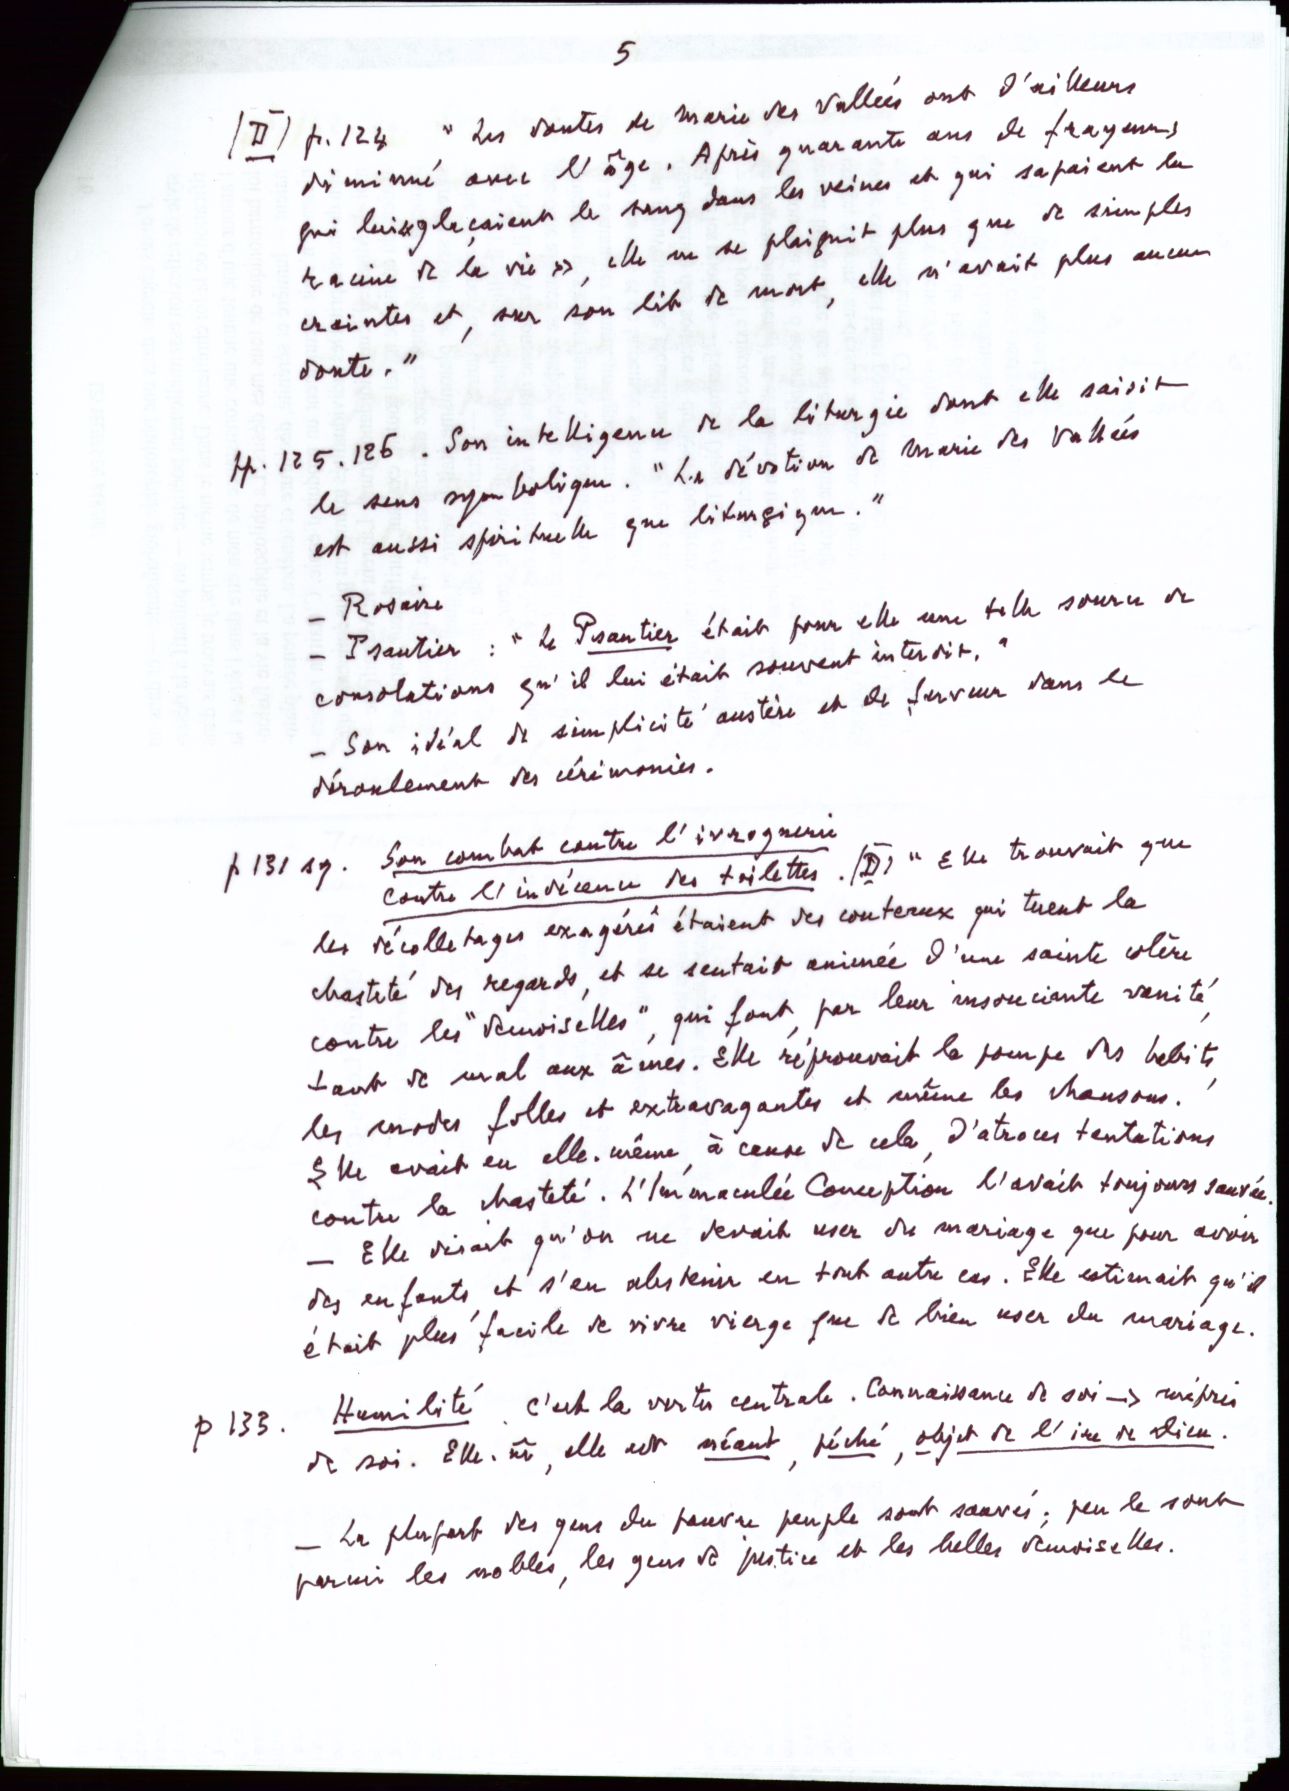 5
(D) p. 124 " Les doutes de Marie des Vallées ont d'ailleurs
diminué avec l'âge. Après quarante ans de frayeurs
qui lui « glaçaient le sang dans les veines et qui sapaient la
racine de la vie », elle ne se plaignit plus que de simples
craintes et, sur son lit de mort, elle n'avait plus aucun
doute. "
pp. 125.126. Son intelligence de la liturgie dont elle saisit
le sens symbolique. " La dévotion de Marie des Vallées
est aussi spirituelle que liturgique. "
– Rosaire
– Psautier : " Le Psautier était pour elle une telle source de
consolations qu'il lui était souvent interdit. "
– Son idéal de simplicité austère et de ferveur dans le
déroulement des cérémonies.
p 131 sq. Son combat contre l'ivrognerie
contre l'indécence des toilettes. (D) " Elle trouvait que
les décolletages exagérés étaient des couteaux qui tuent la
chasteté des regards, et se sentait animée d'une sainte colère
contre les "demoiselles", qui font, par leur insouciante vanité,
tant de mal aux âmes. Elle réprouvait la pompe des habits,
les modes folles et extravagantes et même les chansons.
Elle avait eu elle-même, à cause de cela, d'atroces tentations
contre la chasteté. L'Immaculée Conception l'avait toujours sauvée.
– Elle disait qu'on ne devait user du mariage que pour avoir
des enfants et s'en abstenir en tout autre cas. Elle estimait qu'il
était plus facile de vivre vierge que de bien user du mariage.
p 133. Humilité. C'est la vertu centrale. Connaissance de soi → mépris
de soi. Elle-m̂, elle est néant, péché, objet de l'ire de Dieu.
– La plupart des gens du pauvre peuple sont sauvés ; peu le sont
parmi les nobles, les gens de justice et les belles demoiselles.